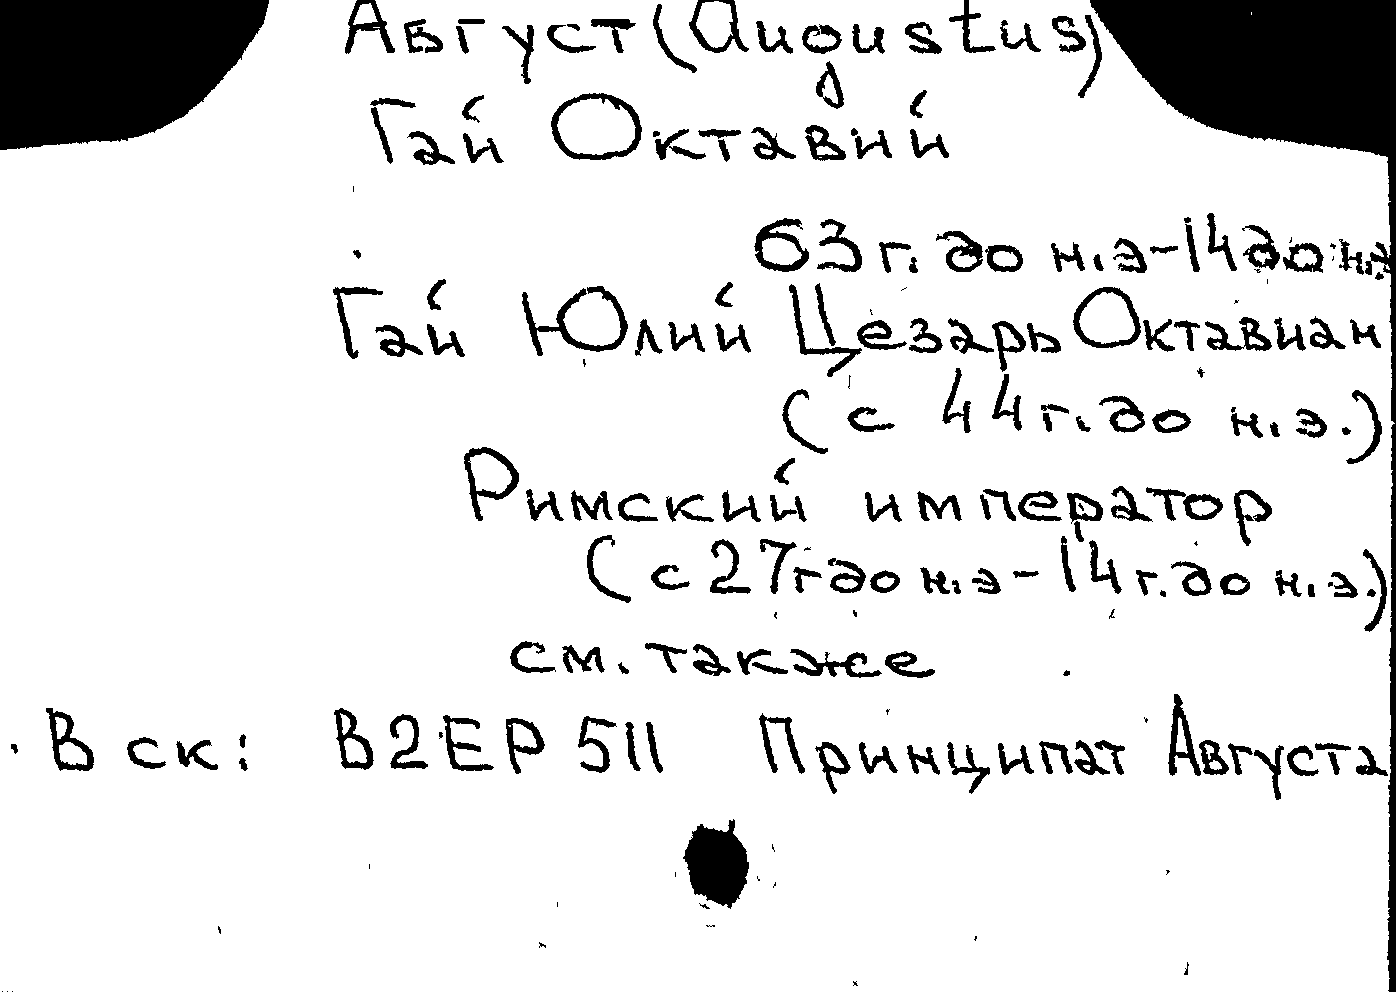 Август (Augustus)
Гай Октавий
63 г. до н.э - 14 до н.э
Гай Юлий Цезарь Октавиан
(с 44 г. до н.э.)
Римский император
(с 27 г до н.э - 14 г. до н.э.)
см. также
В ск: В2ЕР 511 Принципат Августа